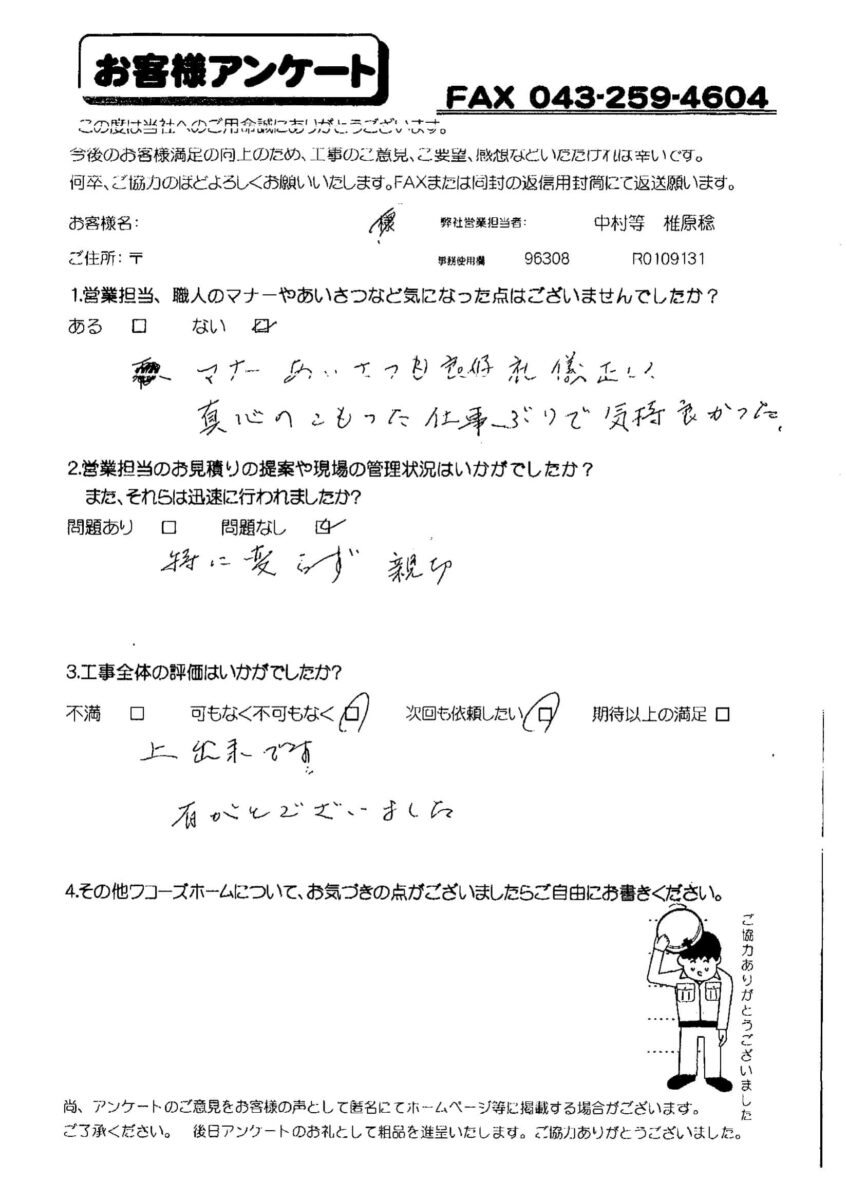 お客様アンケート
FAX 043-259-4604
この度は当社へのご用命誠にありがとうございます。
今後のお客様満足の向上のため、工事のご意見、ご要望、感想などいただければ幸いです。
何卒、ご協力のほどよろしくお願いいたします。FAXまたは同封の返信用封筒にて返送願います。
お客様名: 様 弊社営業担当者: 中村等 椎原稔
ご住所:〒 事務使用欄 96308 R0109131
1.営業担当、職人のマナーやあいさつなど気になった点はございませんでしたか?
ある □ ない ☑
マナー あいさつも良好 礼儀正しく
真心のこもった仕事ぶりで気持良かった、
2.営業担当のお見積りの提案や現場の管理状況はいかがでしたか?
また、それらは迅速に行われましたか?
問題あり □ 問題なし ☑
特に変らず 親切
3.工事全体の評価はいかがでしたか?
不満 □ 可もなく不可もなく □ 次回も依頼したい □ 期待以上の満足 □
上出来です
有がとございました
4.その他ワコーズホームについて、お気づきの点がございましたらご自由にお書きください。
ご協力ありがとうございました
尚、アンケートのご意見をお客様の声として匿名にてホームページ等に掲載する場合がございます。
ご了承ください。 後日アンケートのお礼として粗品を進呈いたします。ご協力ありがとうございました。